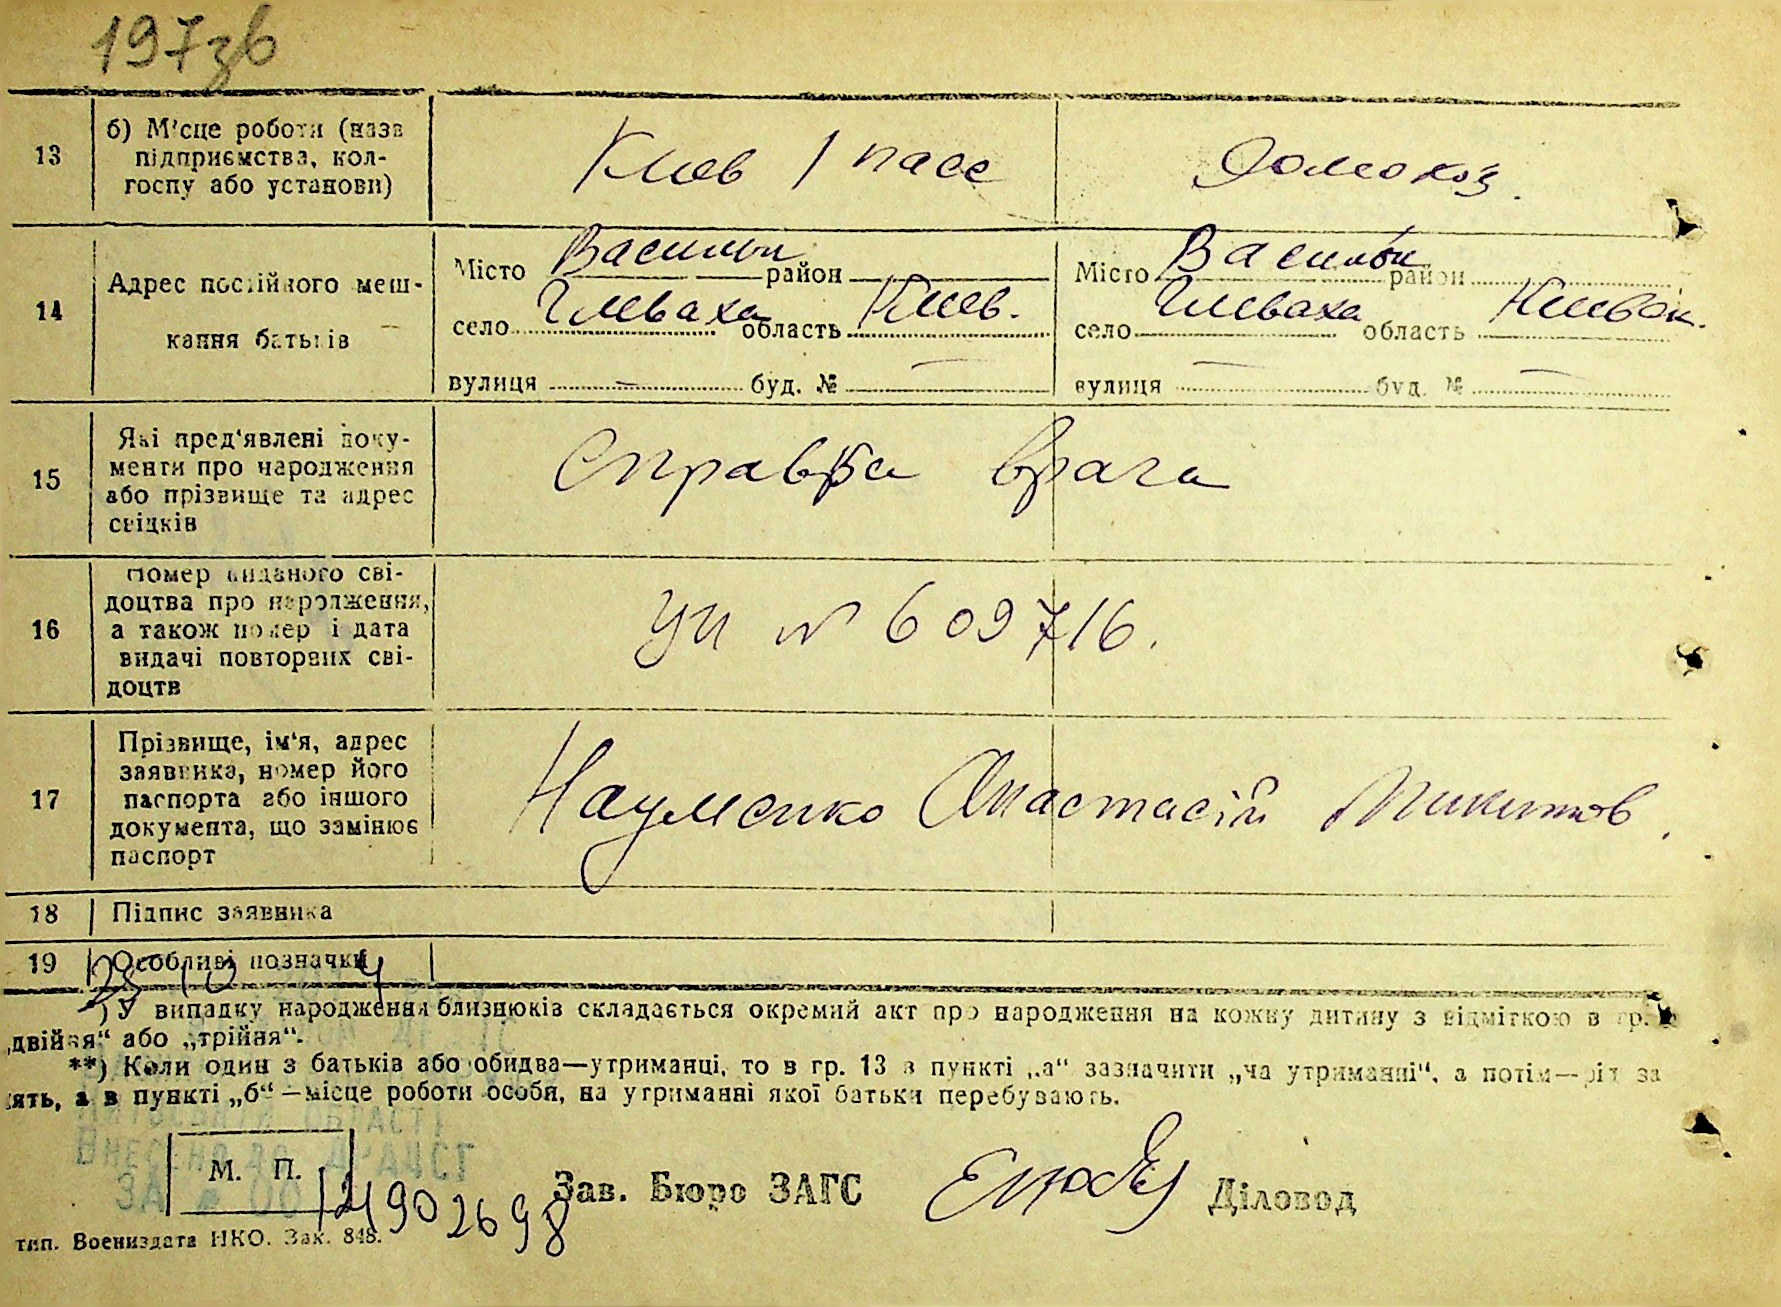 197зв
13
б) М'сце роботи (назв
підприємства, кол-
госпу або установи)
Киев / пасс
Домохоз.
14
Адрес постійного меш-
кання батьків
Місто Васильк район
село Глеваха область Киев.
вулиця — буд. № —
Місто Васильк район
село Глеваха область Киевск.
вулиця — буд. № —
15
Які пред'явлені доку-
менти про народження
або прізвище та адрес
свідків
Справка врача
16
Номер виданого сві-
доцтва про народження,
а також номер і дата
видачі повторних сві-
доцтв
УИ № 609716.
17
Прізвище, ім'я, адрес
заявника, номер його
паспорта або іншого
документа, що замінює
паспорт
Науменко Анастасій Микитов.
18 Підпис заявника
19 Особливі позначки
*) У випадку народження близнюків складається окремий акт про народження на кожну дитину з відміткою в гр.
„двійня" або „трійня".
**) Коли один з батьків або обидва—утриманці, то в гр. 13 в пункті „а" зазначити „на утриманні", а потім—рід за
ять, а в пункті „б" —місце роботи особи, на утриманні якої батьки перебувають.
Внесено до ДРАЦСГ
ЗА № 00124902698
М. П.
Зав. Бюро ЗАГС
Діловод
тип. Воениздата НКО. Зак. 848.